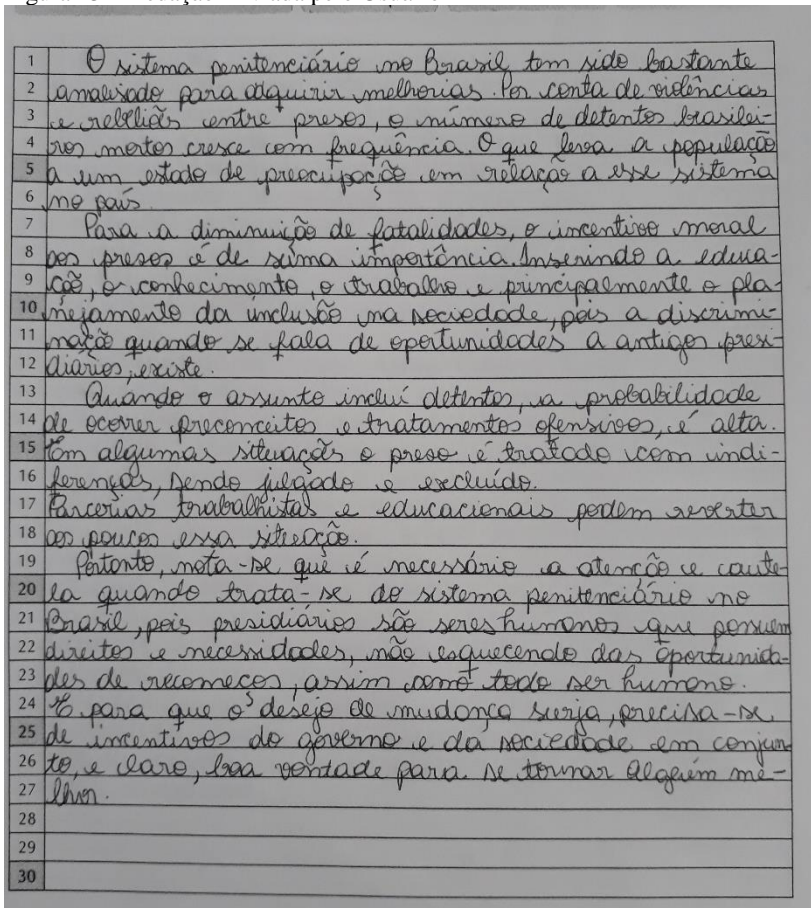 1 O sistema penitenciário no Brasil tem sido bastante
2 analisado para adquirir melhorias. Por conta de violências
3 e rebeliões entre presos, o número de detentos brasilei-
4 ros mortos cresce com frequência. O que leva a população
5 a um estado de preocupação em relação a esse sistema
6 no país.
7 Para a diminuição de fatalidades, o incentivo moral
8 aos presos é de suma importância. Inserindo a educa-
9 ção, o conhecimento, o trabalho e principalmente o pla-
10 nejamento da inclusão na sociedade, pois a discrimi-
11 nação quando se fala de oportunidades a antigos presi-
12 diários, existe.
13 Quando o assunto incluí detentos, a probabilidade
14 de ocorrer preconceitos e tratamentos ofensivos, é alta.
15 Em algumas situações o preso é tratado com indi-
16 ferenças, sendo julgado e excluído.
17 Parcerias trabalhistas e educacionais podem reverter
18 aos poucos essa situação.
19 Portanto, nota-se que é necessário a atenção e caute-
20 la quando trata-se do sistema penitenciário no
21 Brasil, pois presidiários são seres humanos que possuem
22 direitos e necessidades, não esquecendo das oportunida-
23 des de recomeços, assim como todo ser humano.
24 E para que o desejo de mudança surja, precisa-se
25 de incentivos do governo e da sociedade em conjun-
26 to, e claro, boa vontade para se tornar alguém me-
27 lhor.
28
29
30